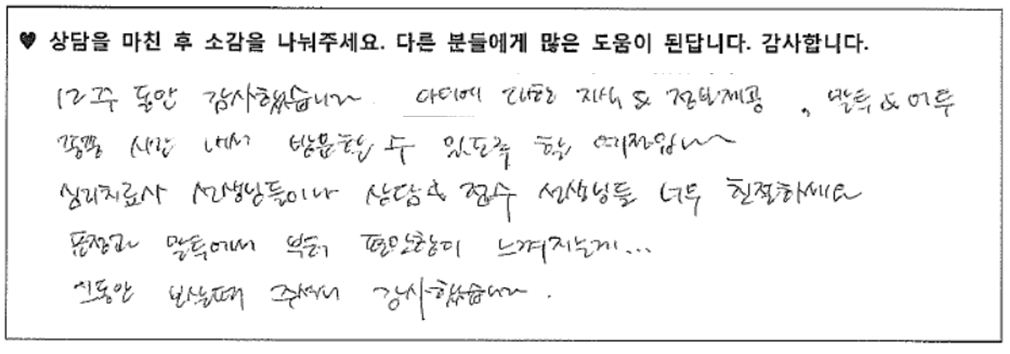 ♥ 상담을 마친 후 소감을 나눠주세요. 다른 분들에게 많은 도움이 된답니다. 감사합니다.
12주 동안 감사했습니다 대한 지식 & 정보제공, 말투 & 어투
시간 내서 방문할 수 있도록 할 예정입니다
심리치료사 선생님들이나 상담 & 접수 선생님들 너무 친절하세요
표정과 말투에서 부터 편안함이 느껴지는게...
그동안 보살펴 주셔서 감사했습니다.